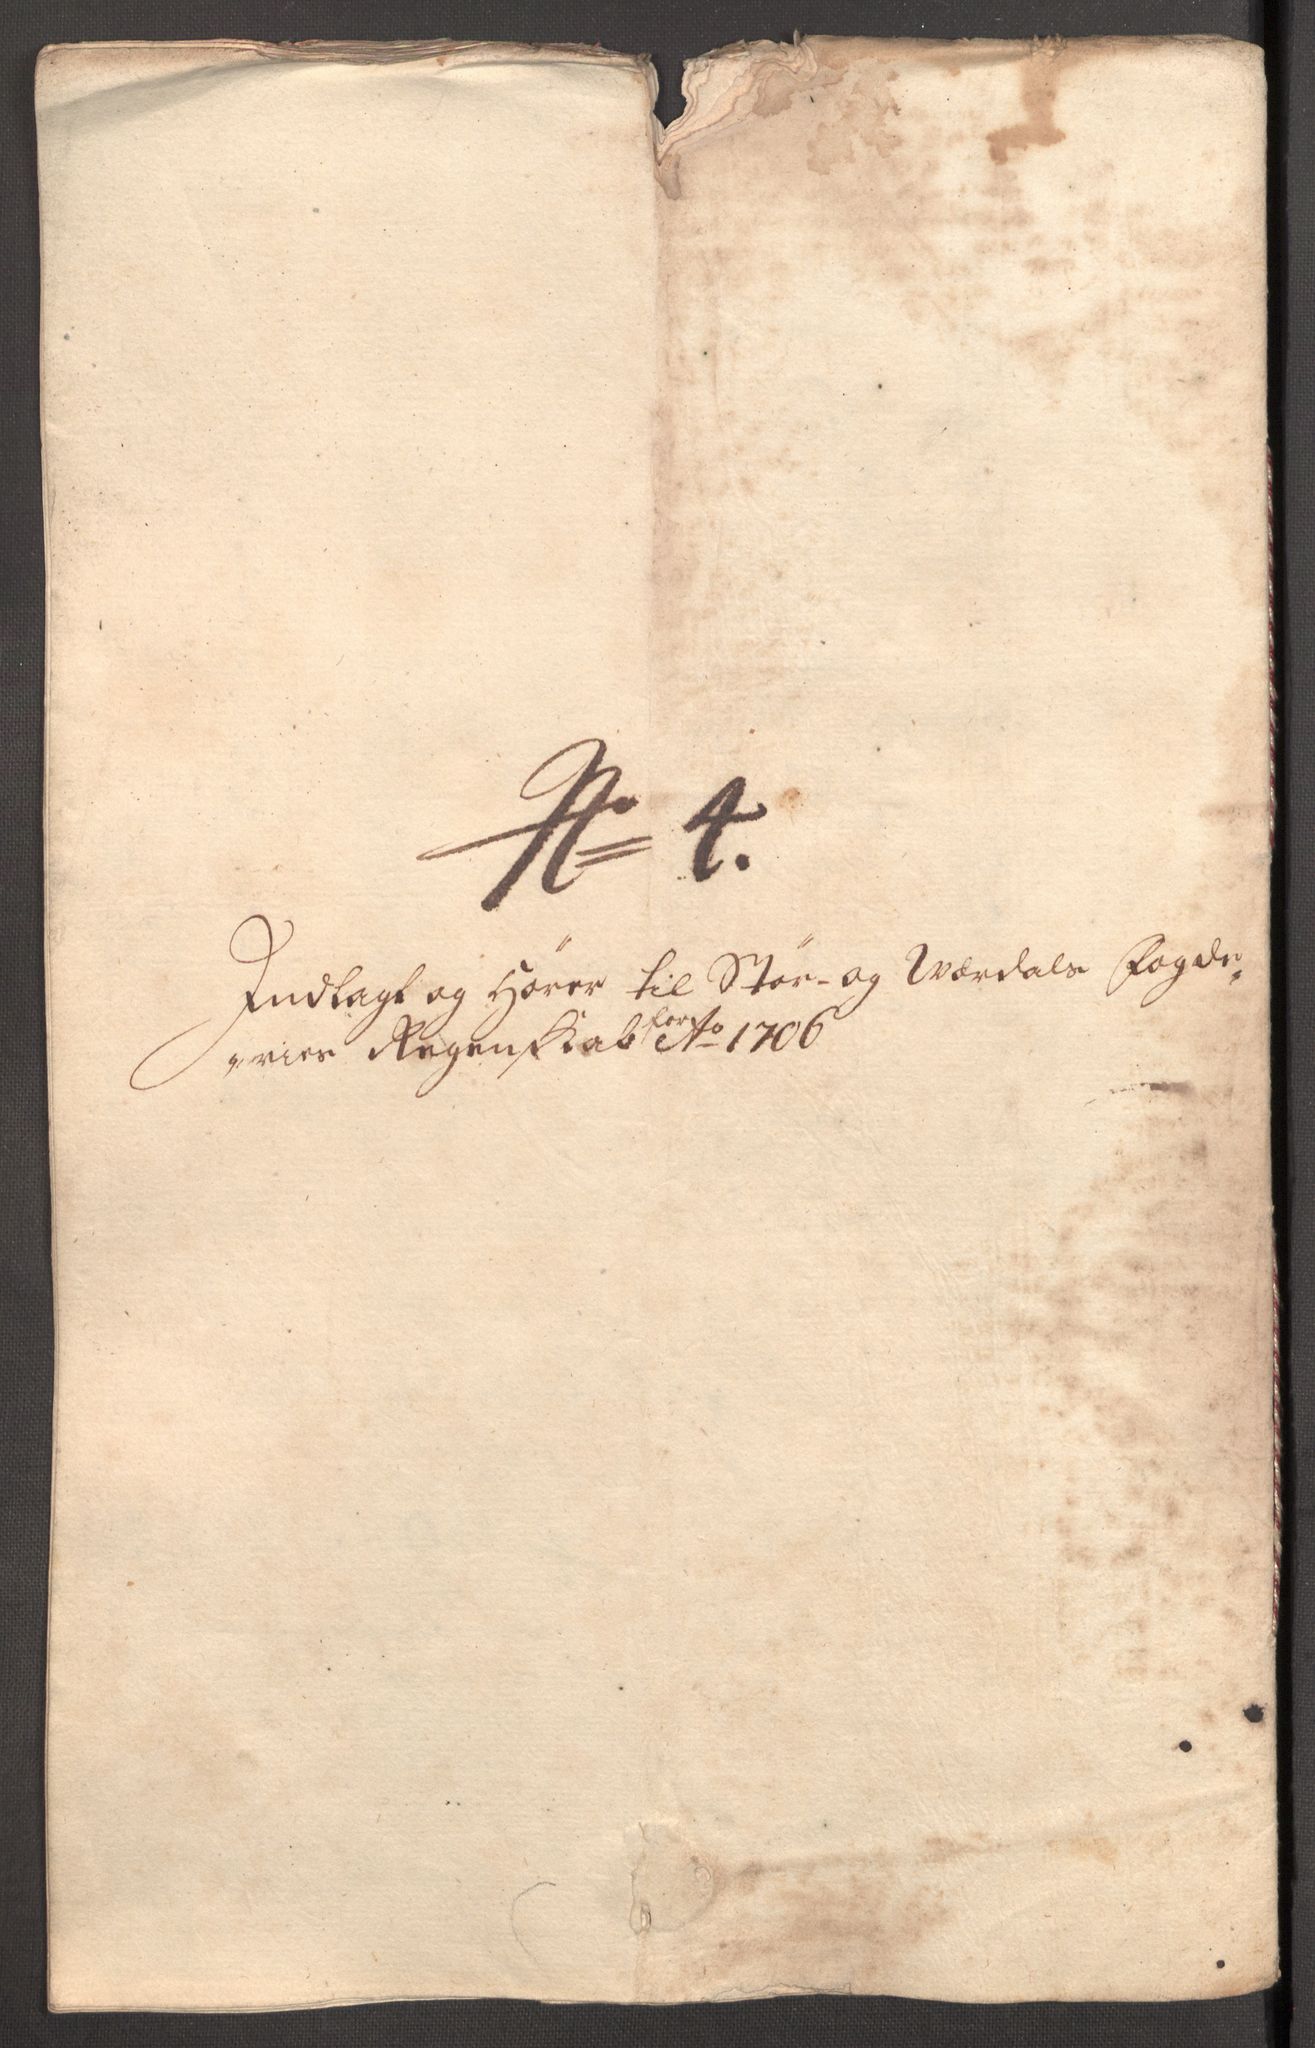 No 4.
Indlagt og Hörer til Stör- og Værdals Fogde„
„ries Regenskab for Ao 1706